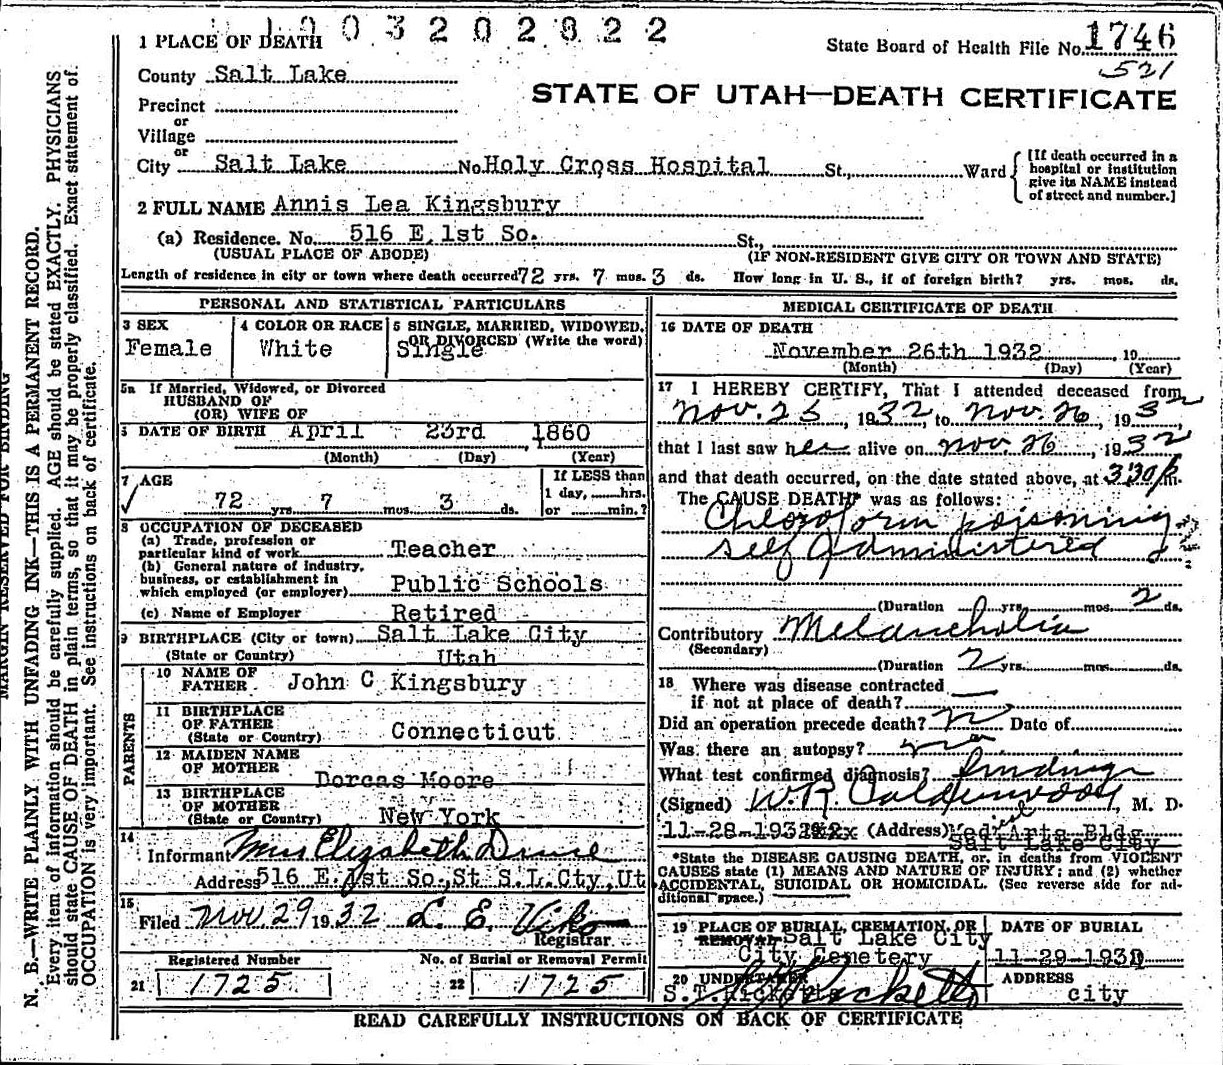 1003202822
1 PLACE OF DEATH
State Board of Health File No. 1746
521
County Salt Lake
STATE OF UTAH—DEATH CERTIFICATE
Precinct
or
Village
or
City Salt Lake No. Holy Cross Hospital St., Ward
[If death occurred in a
hospital or institution
give its NAME instead
of street and number.]
2 FULL NAME Annis Lea Kingsbury
(a) Residence. No. 516 E. 1st So. St.,
(USUAL PLACE OF ABODE) (IF NON-RESIDENT GIVE CITY OR TOWN AND STATE)
Length of residence in city or town where death occurred 72 yrs. 7 mos. 3 ds. How long in U. S., if of foreign birth? yrs. mos. ds.
PERSONAL AND STATISTICAL PARTICULARS
3 SEX
Female
4 COLOR OR RACE
White
5 SINGLE, MARRIED, WIDOWED,
OR DIVORCED (Write the word)
Single
5a If Married, Widowed, or Divorced
HUSBAND OF
(OR) WIFE OF
DATE OF BIRTH April 23rd 1860
(Month) (Day) (Year)
7 AGE
72 yrs. 7 mos. 3 ds.
If LESS than
1 day, hrs.
or min.?
8 OCCUPATION OF DECEASED
(a) Trade, profession or
particular kind of work Teacher
(b) General nature of industry,
business, or establishment in
which employed (or employer) Public Schools
(c) Name of Employer Retired
9 BIRTHPLACE (City or town) Salt Lake City
(State or Country) Utah
PARENTS
10 NAME OF
FATHER John C Kingsbury
11 BIRTHPLACE
OF FATHER
(State or Country) Connecticut
12 MAIDEN NAME
OF MOTHER Dorcas Moore
13 BIRTHPLACE
OF MOTHER
(State or Country) New York
14
Informant Elizabeth
Address 516 E. 1st So. St S.L.Cty, Ut
15
Filed Nov. 29 1932 L. E. Viko
Registrar
Registered Number No. of Burial or Removal Permit
21 1725 22 1725
MEDICAL CERTIFICATE OF DEATH
16 DATE OF DEATH
November 26th 1932 19
(Month) (Day) (Year)
17 I HEREBY CERTIFY, That I attended deceased from
Nov. 25, 1932, to Nov. 26, 1932
that I last saw her alive on Nov. 26, 1932
and that death occurred, on the date stated above, at 3:30 p.m.
The CAUSE DEATH* was as follows:
Chloroform poisoning
self administered
(Duration 0 yrs. mos. 2 ds.
Contributory Melancholia
(Secondary)
(Duration 2 yrs. mos. ds.
18 Where was disease contracted
if not at place of death?
Did an operation precede death? n Date of
Was there an autopsy? no
What test confirmed diagnosis?
(Signed) W. R. Calderwood, M. D.
11-28-1932 (Address) Medical Arts Bldg
Salt Lake City
*State the DISEASE CAUSING DEATH, or, in deaths from VIOLENT
CAUSES state (1) MEANS AND NATURE OF INJURY; and (2) whether
ACCIDENTAL, SUICIDAL OR HOMICIDAL. (See reverse side for ad-
ditional space.)
19 PLACE OF BURIAL, CREMATION, OR
REMOVAL Salt Lake City
City Cemetery
DATE OF BURIAL
11-29-193
20 UNDERTAKER
S.T.Ricketts
ADDRESS
city
READ CAREFULLY INSTRUCTIONS ON BACK OF CERTIFICATE
MARGIN RESERVED FOR BINDING
N. B.—WRITE PLAINLY WITH UNFADING INK—THIS IS A PERMANENT RECORD.
Every item of information should be carefully supplied. AGE should be stated EXACTLY. PHYSICIANS
should state CAUSE OF DEATH in plain terms, so that it may be properly classified. Exact statement of
OCCUPATION is very important. See instructions on back of certificate.